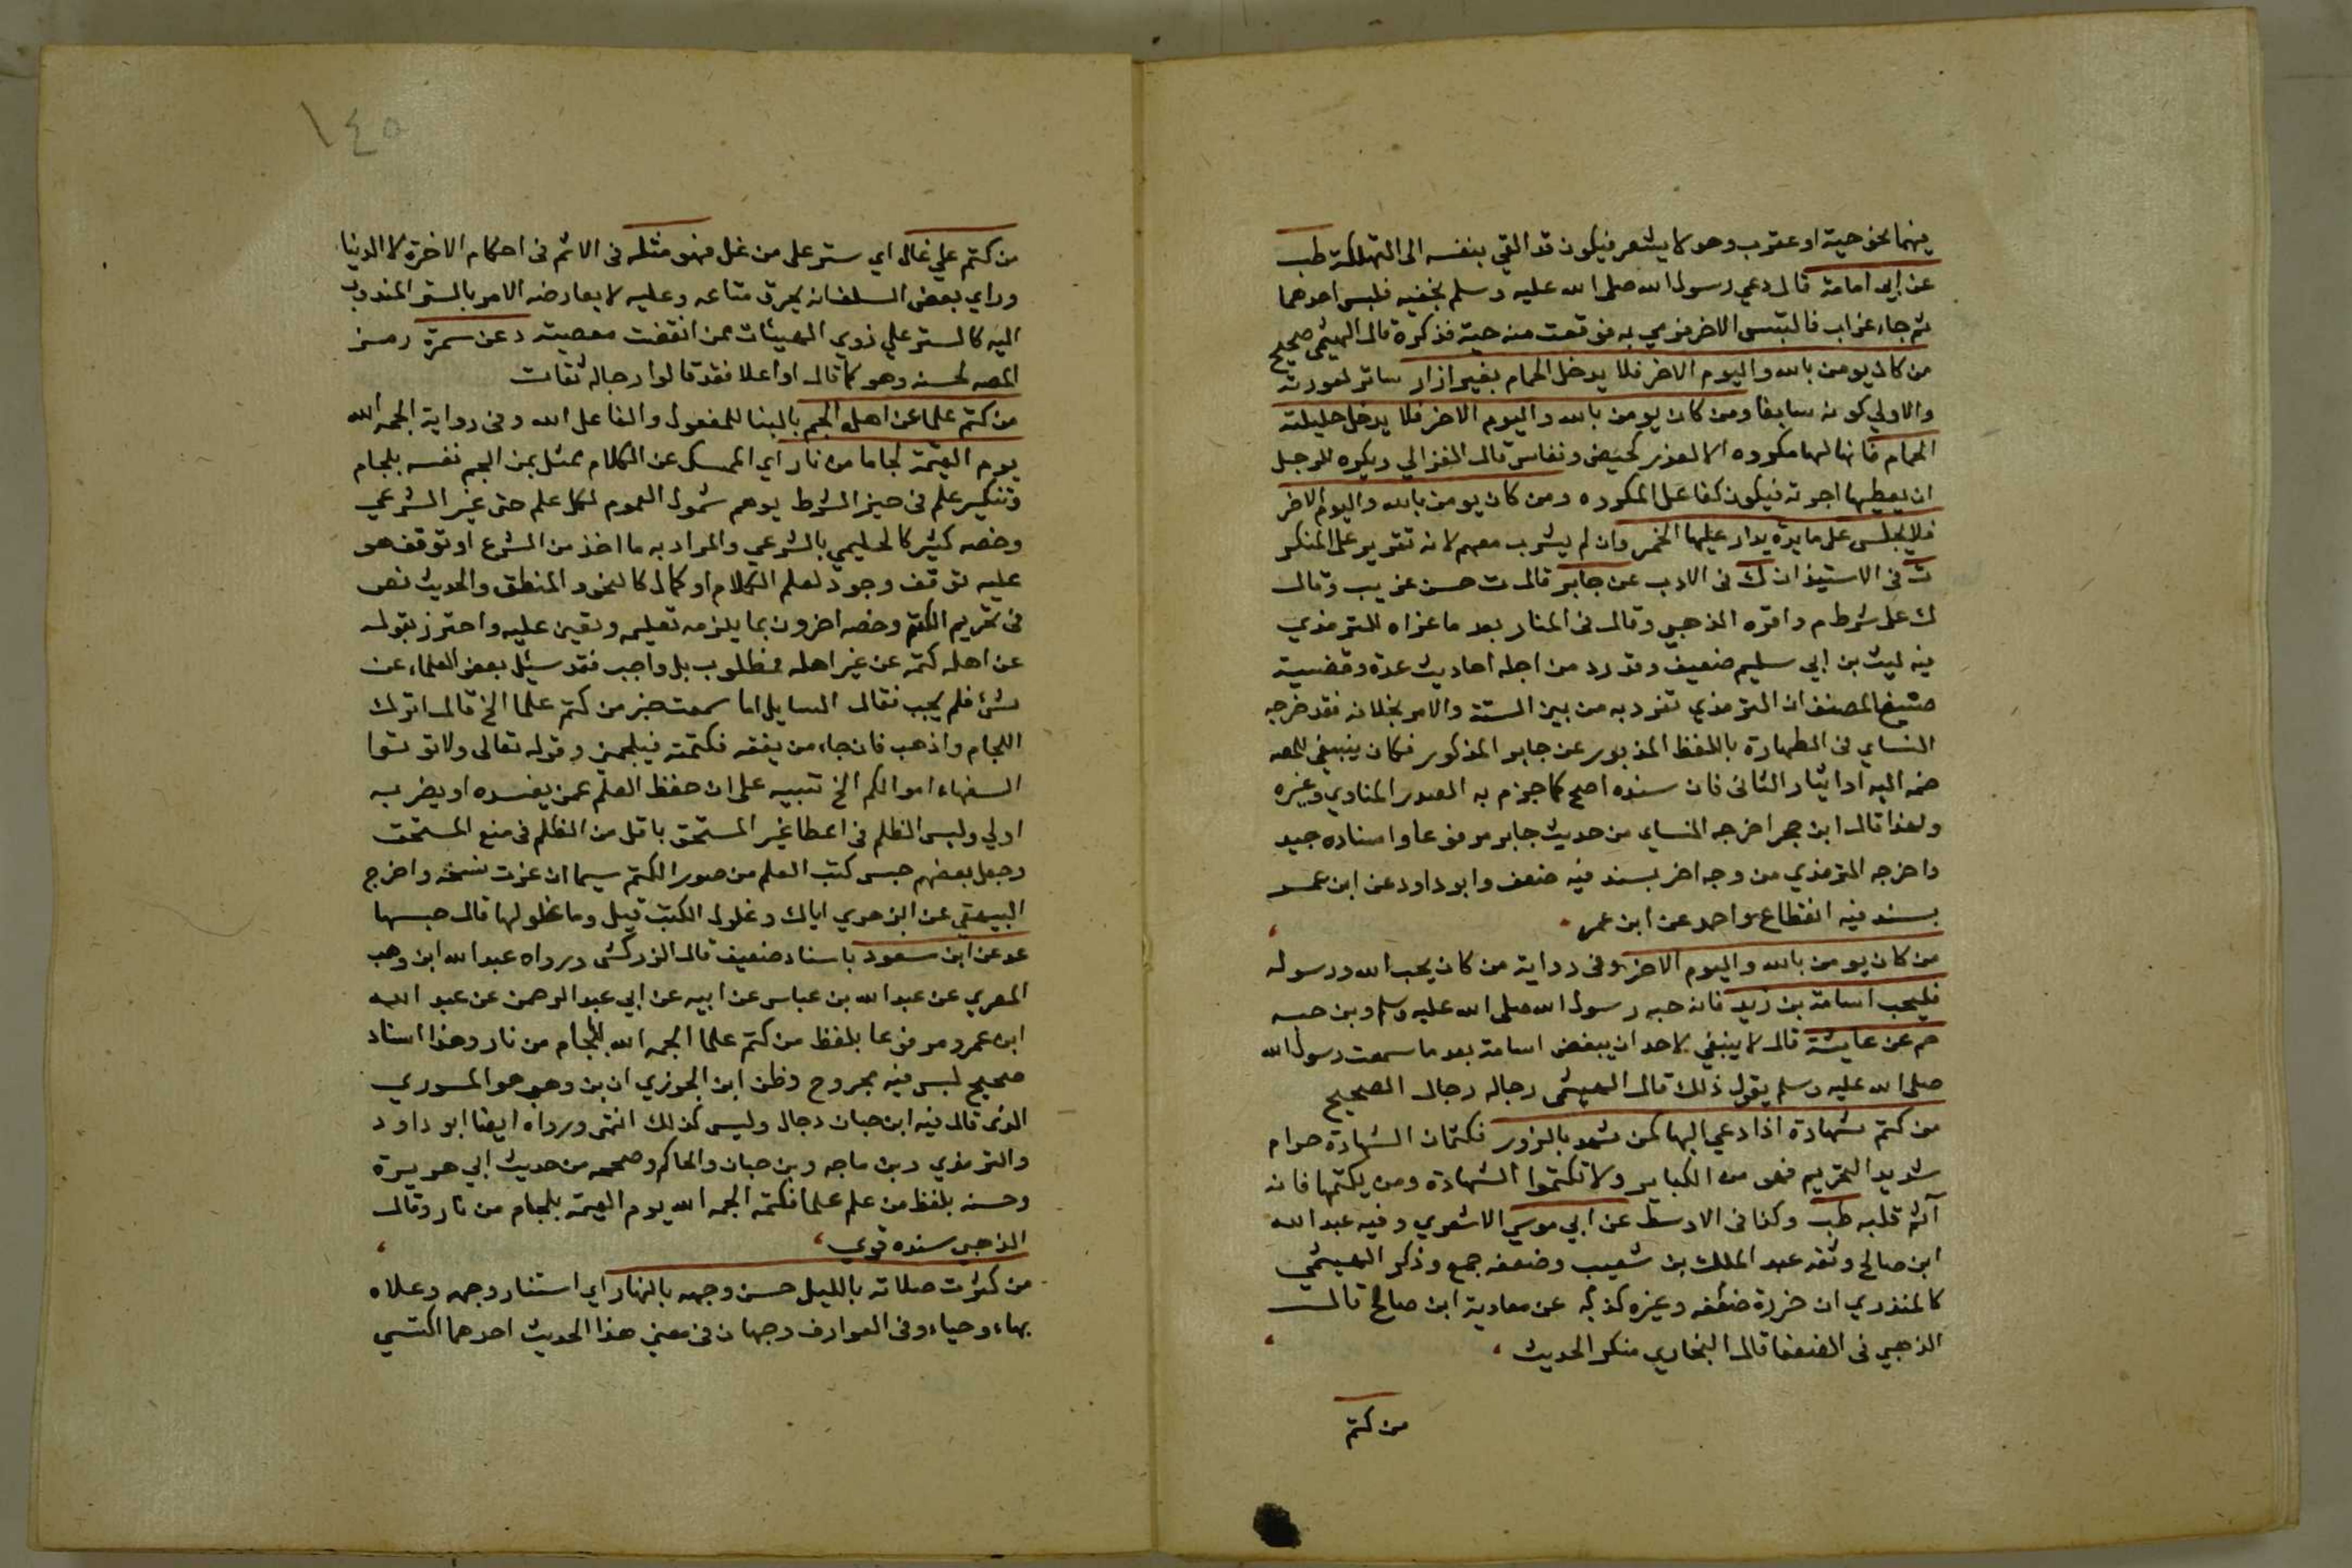 فيهما نحو حية او عقرب وهو لا يشعر فيكون قد القي بنفسه الى التهلكة طب
عن ابي امامة قال دعي رسول الله صلى الله عليه وسلم بخفيه فلبس احدهما
ثم جاء غراب فالتبس الاخر فرمي به فوقعت منه حية فذكره قال الهيثمي صحيح
من كان يومن بالله واليوم الاخر فلا يدخل الحمام بغير ازار ساتر لعورته
والاولي كونه سابغا ومن كان يومن بالله واليوم الاخر فلا يدخل حليلته
الحمام فانها لها مكروه الا لعذر كحيض ونفاس قال الغزالي ويكره للرجل
ان يعطيها اجرته فيكون كفاعل المكروه ومن كان يومن بالله واليوم الاخر
فلا يجلس على مايدة يدار عليها الخمر وان لم يشرب معهم لانه تقرير على المنكر
ت في الاستيذان ك في الادب عن جابر قال ت حسن غريب وقال
ك على شرط م واقره الذهبي وقال في المنار بعد ما عزاه للترمذي
فيه ليث بن ابي سليم ضعيف وقد رد من اجله احاديث عدة وقضية
صنيع المصنف ان الترمذي تفرد به من بين الستة والامر بخلافه فقد خرجه
النساي في الطهارة باللفظ المذبور عن جابر المذكور فكان ينبغي للمص
ضمه اليه او ايثار الثاني فان سنده اصح كما جزم به الصدر المناوي وغيره
ولهذا قال ابن حجر اخرجه النساي من حديث جابر مرفوعا واسناده جيد
واخرجه الترمذي من وجه اخر بسند فيه ضعف وابو داود عن ابن عمر
بسند فيه انقطاع واحد عن ابن عمر
من كان يومن بالله واليوم الاخر وفي رواية من كان يحب الله ورسوله
فليحب اسامة بن زيد فانه حبه رسول الله صلى الله عليه وسلم وبن حبه
حم عن عايشة قال لا ينبغي لاحد ان يبغض اسامة بعد ما سمعت رسول الله
صلى الله عليه وسلم يقول ذلك قال الهيثمي رجاله رجال الصحيح
من كتم شهادة اذا دعي اليها كمن شهد بالزور فكتمان الشهادة حرام
شديد التحريم فهو من الكباير ولا تكتموا الشهادة ومن يكتمها فانه
آثم قلبه طب وكذا في الاوسط عن ابي موسي الاشعري وفيه عبد الله
ابن صالح وثقه عبد الملك بن شعيب وضعفه جمع وذكر الهيثمي
كالمنذري ان خزرة ضعفه وغيره كذبه عن معاوية ابن صالح قال
الذهبي في الضعفا قال البخاري منكر الحديث
من كتم
١٤٥
من كتم علي غال اي ستر على من غل فهو مثله في الاثم في احكام الاخرة لا الدنيا
وراي بعض السلف انه يحرق متاعه وعليه لا يعارضه الامر بالستر المندوب
اليه كالستر علي ذوي الهيئات ممن انقضت معصيته د عن سمرة رمز
المص لحسنه وهو كما قال او اعلا فقد قالوا رجاله ثقات
من كتم علما عن اهله الجم بالبنا للمفعول والفاعل الله وفي رواية الجمه الله
يوم القيمة لجاما من نار اي الممسك عن الكلام ممثل بمن الجم نفسه بلجام
وتنكير علم في حيز الشرط يوهم شمول العموم لكل علم حتى غير الشرعي
وخصه كثير كالحليمي بالشرعي والمراد به ما اخذ من الشرع او توقف هو
عليه توقف وجود لعلم الكلام او كمال كالنحو والمنطق والحديث نص
في تحريم الكتم وخصه اخرون بما يلزمه تعليمه وتعين عليه واحترز بقوله
عن اهله كتمه عن غير اهله فمطلوب بل واجب فقد سئيل بعض العلماء عن
شئ فلم يجب فقال السايل اما سمعت خبر من كتم علما الخ قال اترك
اللجام واذهب فان جاء من يفقه فكتمته فيلجمني وقوله تعالى ولا توتوا
السفهاء اموالكم الخ تنبيه على ان حفظ العلم عمن يفسده او يضر به
اولي وليس الظلم في اعطا غير المستحق باقل من الظلم في منع المستحق
وجعل بعضهم حبس كتب العلم من صور الكتم سيما ان عزت نسخه واخرج
البيهقي عن الزهري اياك وغلول الكتب قيل وما غلولها قال حبسها
عد عن ابن مسعود باسناد ضعيف قال الزركشى ورواه عبد الله ابن وهب
المصري عن عبد الله بن عباس عن ابيه عن ابي عبد الرحمن عن عبد الله
ابن عمرو مرفوعا بلفظ من كتم علما الجمه الله بلجام من نار وهذا اسناد
صحيح ليس فيه مجروح وظن ابن الجوزي ان بن وهب هو المسوري
الذي قال فيه ابن حبان دجال وليس كذلك انتهى ورواه ايضا ابو داود
والترمذي وبن ماجه وبن حبان والحاكم وصححه من حديث ابي هريرة
وحسنه بلفظ من علم علما فكتمه الجمه الله يوم القيمة بلجام من نار وقال
الذهبي سنده قوي
من كثرت صلاته بالليل حسن وجهه بالنهار اي استنار وجهه وعلاه
بهاء وحياء وفي العوارف وجهان في معنى هذا الحديث احدهما اكتسي